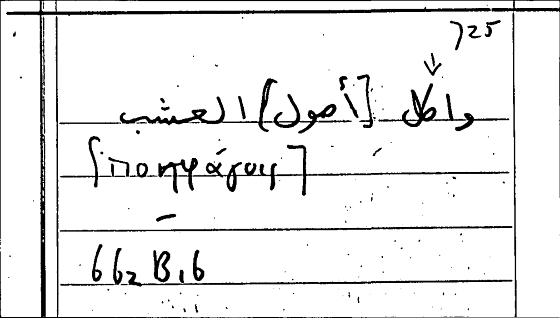 725
واكل [أصول] العشب
[ποηφάγοις]
662 B,6